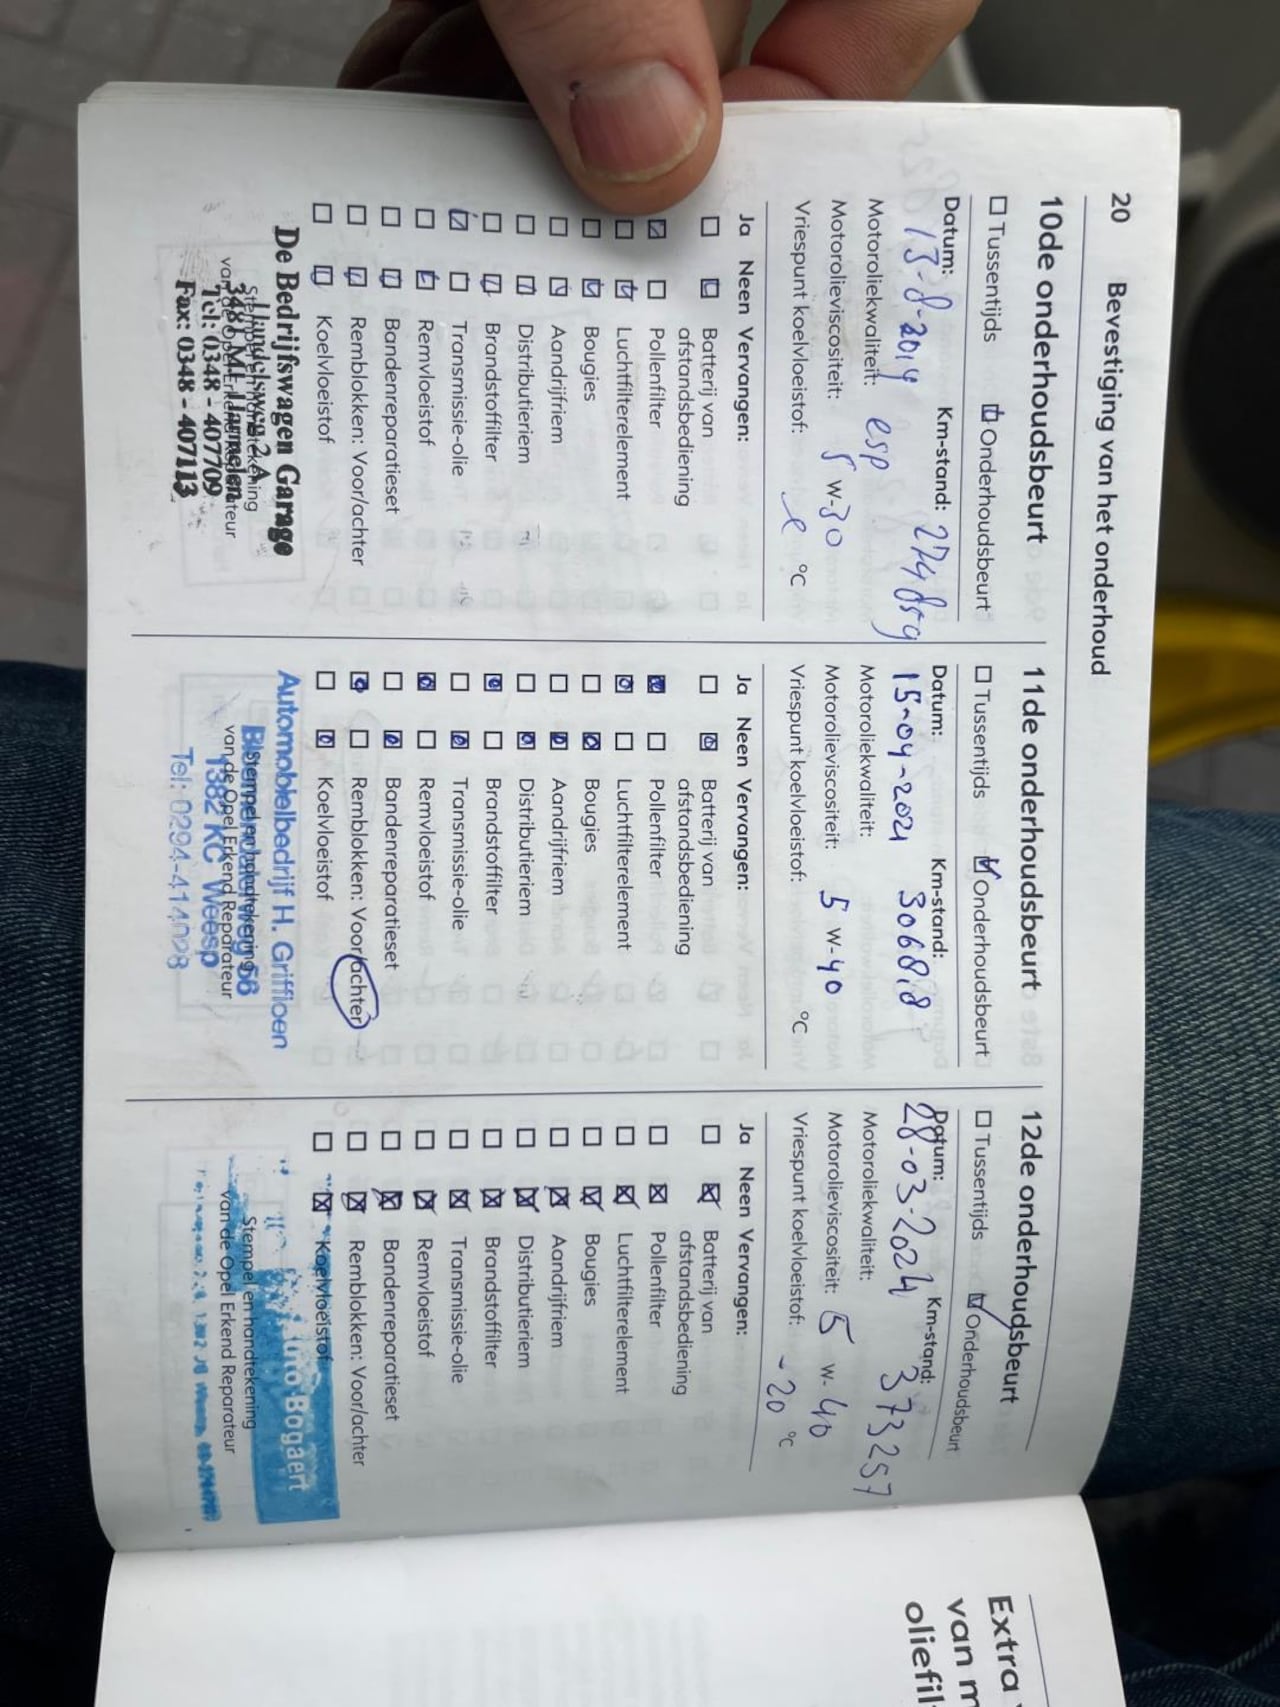 20 Bevestiging van het onderhoud
10de onderhoudsbeurt
Tussentijds Onderhoudsbeurt
Datum: Km-stand:
13-8-2014
Motoroliekwaliteit:
Motorolieviscositeit: 5 W-30
Vriespunt koelvloeistof: °C
Ja Neen Vervangen:
Batterij van
afstandsbediening
Pollenfilter
Luchtfilterelement
Bougies
Aandrijfriem
Distributieriem
Brandstoffilter
Transmissie-olie
Remvloeistof
Bandenreparatieset
Remblokken: Voor/achter
Koelvloeistof
De Bedrijfswagen Garage
Handelsweg 2 A
Stempel en handtekening
van de Opel Erkend Reparateur
Tel: 0348 - 407709
Fax: 0348 - 407113
11de onderhoudsbeurt
Tussentijds Onderhoudsbeurt
Datum: Km-stand:
15-04-2021 306818
Motoroliekwaliteit:
Motorolieviscositeit: 5 W-40
Vriespunt koelvloeistof: °C
Ja Neen Vervangen:
Batterij van
afstandsbediening
Pollenfilter
Luchtfilterelement
Bougies
Aandrijfriem
Distributieriem
Brandstoffilter
Transmissie-olie
Remvloeistof
Bandenreparatieset
Remblokken: Voor/achter
Koelvloeistof
Automobielbedrijf H. Griffioen
Stempel en handtekening
van de Opel Erkend Reparateur
1382 KC Weesp
Tel: 0294-414028
12de onderhoudsbeurt
Tussentijds Onderhoudsbeurt
Datum: Km-stand:
28-03-2024 373257
Motoroliekwaliteit:
Motorolieviscositeit: 5 W-40
Vriespunt koelvloeistof: -20 °C
Ja Neen Vervangen:
Batterij van
afstandsbediening
Pollenfilter
Luchtfilterelement
Bougies
Aandrijfriem
Distributieriem
Brandstoffilter
Transmissie-olie
Remvloeistof
Bandenreparatieset
Remblokken: Voor/achter
Koelvloeistof
Bogaert
Stempel en handtekening
van de Opel Erkend Reparateur
Extra
van m
oliefil